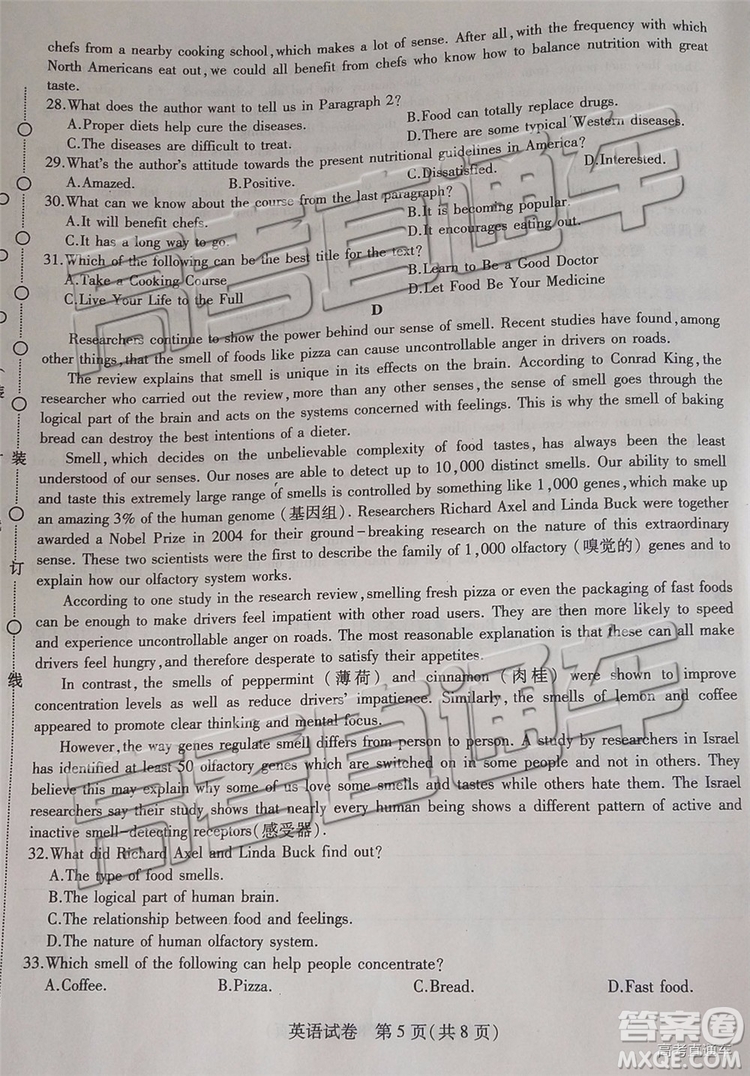 chefs from a nearby cooking school,which makes a lot of sense. After all,with the frequency with which
North Americans eat out,we could all benefit from chefs who know how to balance nutrition with great
taste.
28.What does the author want to tell us in Paragraph 2?
A.Proper diets help cure the diseases.
B.Food can totally replace drugs.
C.The diseases are difficult to treat.
D.There are some typical Western diseases.
29.What's the author's attitude towards the present nutritional guidelines in America?
A.Amazed. B.Positive. C.Dissatisfied. D.Interested.
30.What can we know about the course from the last paragraph?
A.It will benefit chefs.
B.It is becoming popular.
C.It has a long way to go.
D.It encourages eating out.
31.Which of the following can be the best title for the text?
A.Take a Cooking Course
B.Learn to Be a Good Doctor
C.Live Your Life to the Full
D.Let Food Be Your Medicine
D
Researchers continue to show the power behind our sense of smell. Recent studies have found,among
other things,that the smell of foods like pizza can cause uncontrollable anger in drivers on roads.
The review explains that smell is unique in its effects on the brain. According to Conrad King,the
researcher who carried out the review,more than any other senses,the sense of smell goes through the
logical part of the brain and acts on the systems concerned with feelings. This is why the smell of baking
bread can destroy the best intentions of a dieter.
Smell,which decides on the unbelievable complexity of food tastes,has always been the least
understood of our senses. Our noses are able to detect up to 10,000 distinct smells. Our ability to smell
and taste this extremely large range of smells is controlled by something like 1,000 genes,which make up
an amazing 3% of the human genome (基因组). Researchers Richard Axel and Linda Buck were together
awarded a Nobel Prize in 2004 for their ground-breaking research on the nature of this extraordinary
sense. These two scientists were the first to describe the family of 1,000 olfactory (嗅觉的) genes and to
explain how our olfactory system works.
According to one study in the research review,smelling fresh pizza or even the packaging of fast foods
can be enough to make drivers feel impatient with other road users. They are then more likely to speed
and experience uncontrollable anger on roads. The most reasonable explanation is that these can all make
drivers feel hungry,and therefore desperate to satisfy their appetites.
In contrast, the smells of peppermint (薄荷) and cinnamon (肉桂) were shown to improve
concentration levels as well as reduce drivers' impatience. Similarly, the smells of lemon and coffee
appeared to promote clear thinking and mental focus.
However,the way genes regulate smell differs from person to person. A study by researchers in Israel
has identified at least 50 olfactory genes which are switched on in some people and not in others. They
believe this may explain why some of us love some smells and tastes while others hate them. The Israel
researchers say their study shows that nearly every human being shows a different pattern of active and
inactive smell-detecting receptors(感受器).
32.What did Richard Axel and Linda Buck find out?
A.The type of food smells.
B.The logical part of human brain.
C.The relationship between food and feelings.
D.The nature of human olfactory system.
33.Which smell of the following can help people concentrate?
A.Coffee. B.Pizza. C.Bread. D.Fast food.
英语试卷 第 5 页(共 8 页)
装
订
线
高考直通车
高考直通车
答案圈
高考直通车
MXQE.COM